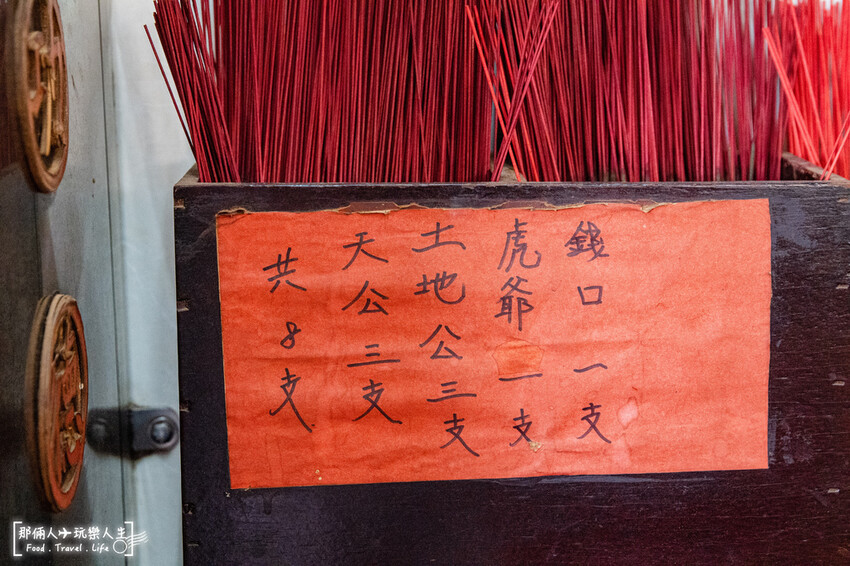 錢口一支
虎爺一支
土地公三支
天公三支
共8支
那倆人玩樂人生
Food . Travel . Life